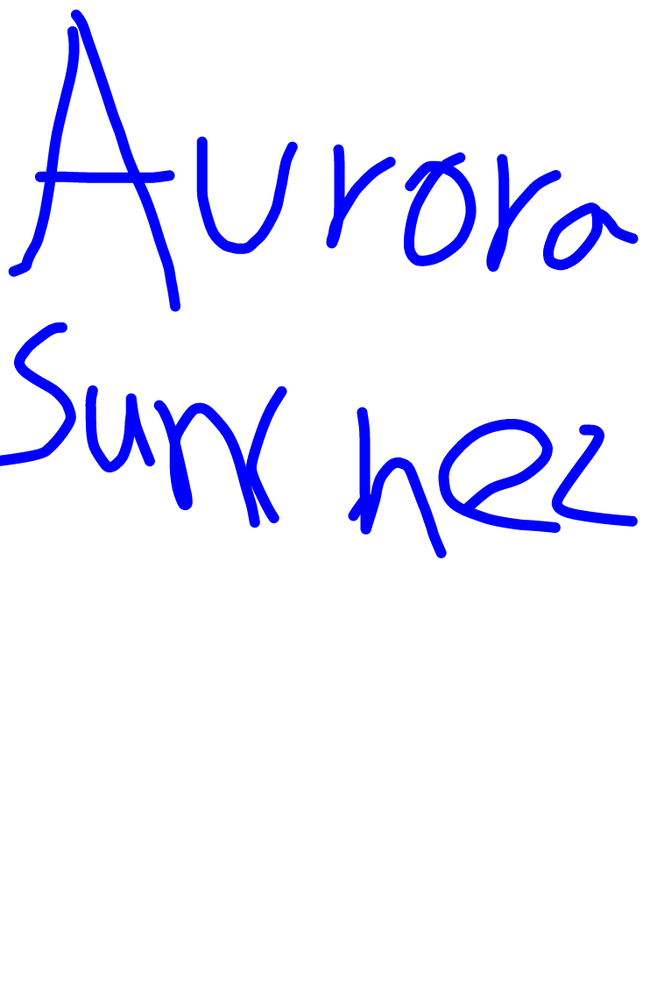 Aurora
Sunchez